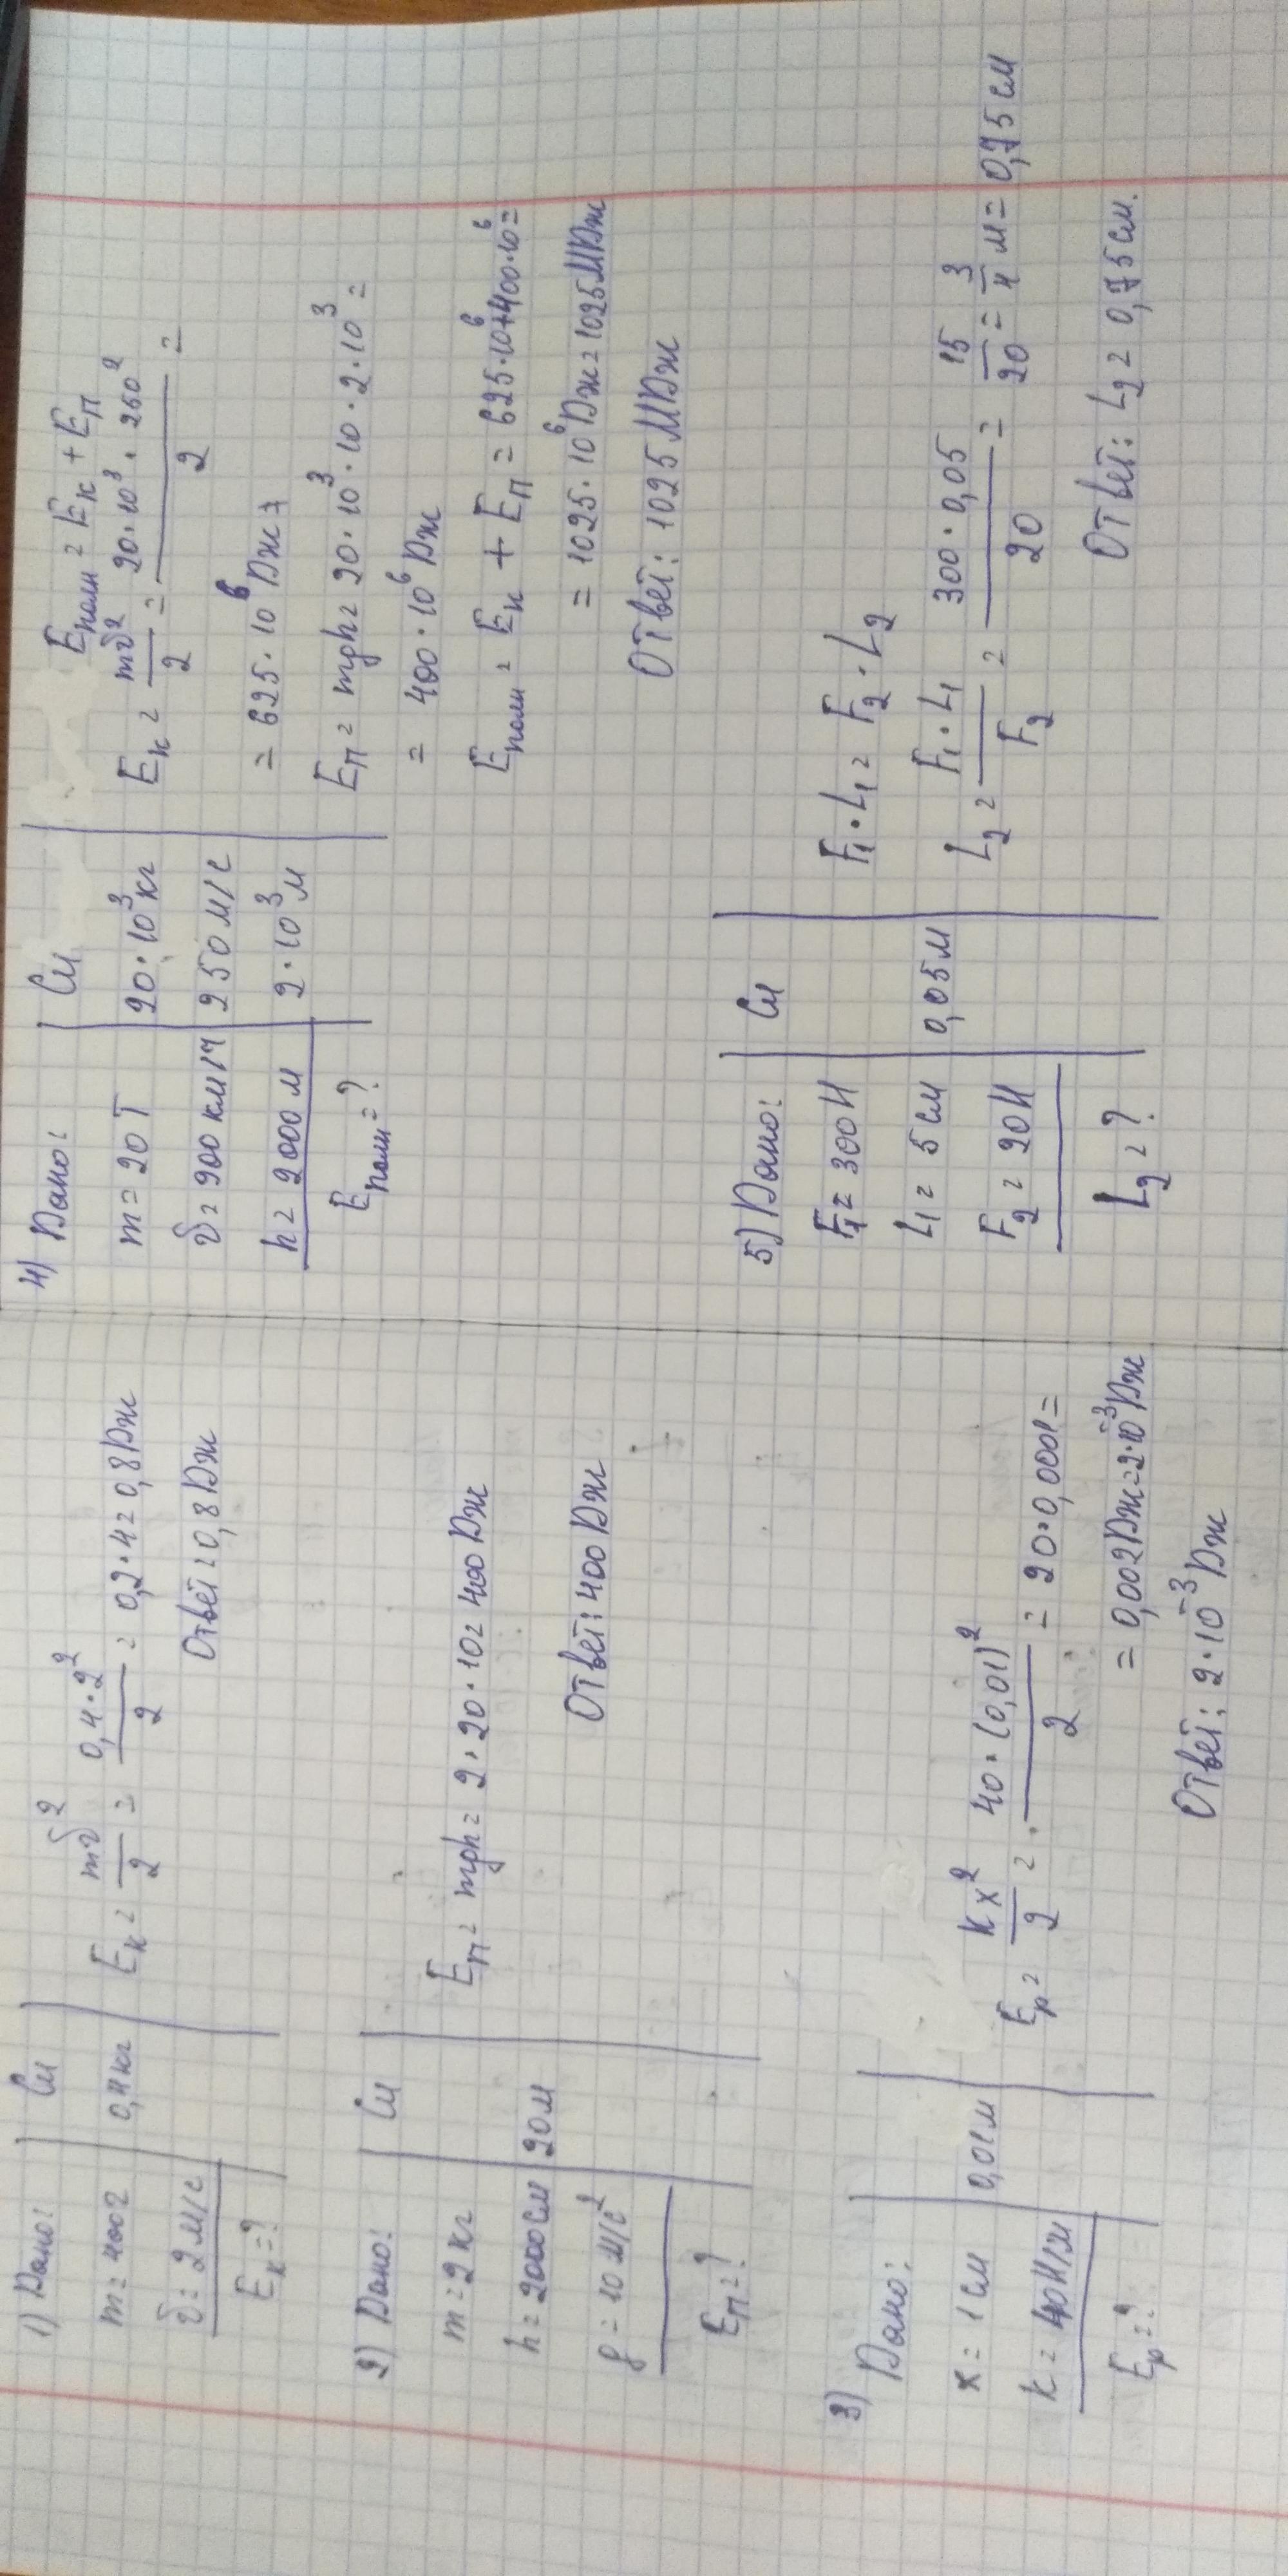 1) Дано:
m = 400 г
υ = 2 м/с
Eк = ?
Си
0,4 кг
Eк = mυ²/2 = 0,4·2²/2 = 0,2·4 = 0,8 Дж
Ответ = 0,8 Дж
2) Дано:
m = 2 кг
h = 2000 см
g = 10 м/с²
Eп = ?
Си
20 м
Eп = mgh = 2·20·10 = 400 Дж
Ответ: 400 Дж
3) Дано:
x = 1 см
k = 40 Н/м
Ep = ?
0,01 м
Ep = kx²/2 = 40·(0,01)²/2 = 20·0,0001 =
= 0,002 Дж = 2·10⁻³ Дж
Ответ: 2·10⁻³ Дж
4) Дано:
m = 20 т
υ = 900 км/ч
h = 2000 м
Eполн = ?
Си
20·10³ кг
250 м/с
2·10³ м
Eполн = Eк + Eп
Eк = mυ²/2 = 20·10³·250²/2 =
= 625·10⁶ Дж
Eп = mgh = 20·10³·10·2·10³ =
= 400·10⁶ Дж
Eполн = Eк + Eп = 625·10⁶+400·10⁶ =
= 1025·10⁶ Дж = 1025 МДж
Ответ: 1025 МДж
5) Дано:
F₁ = 300 Н
L₁ = 5 см
F₂ = 20 Н
L₂ = ?
Си
0,05 м
F₁·L₁ = F₂·L₂
L₂ = F₁·L₁/F₂ = 300·0,05/20 = 15/20 = 3/4 м = 0,75 см
Ответ: L₂ = 0,75 см.